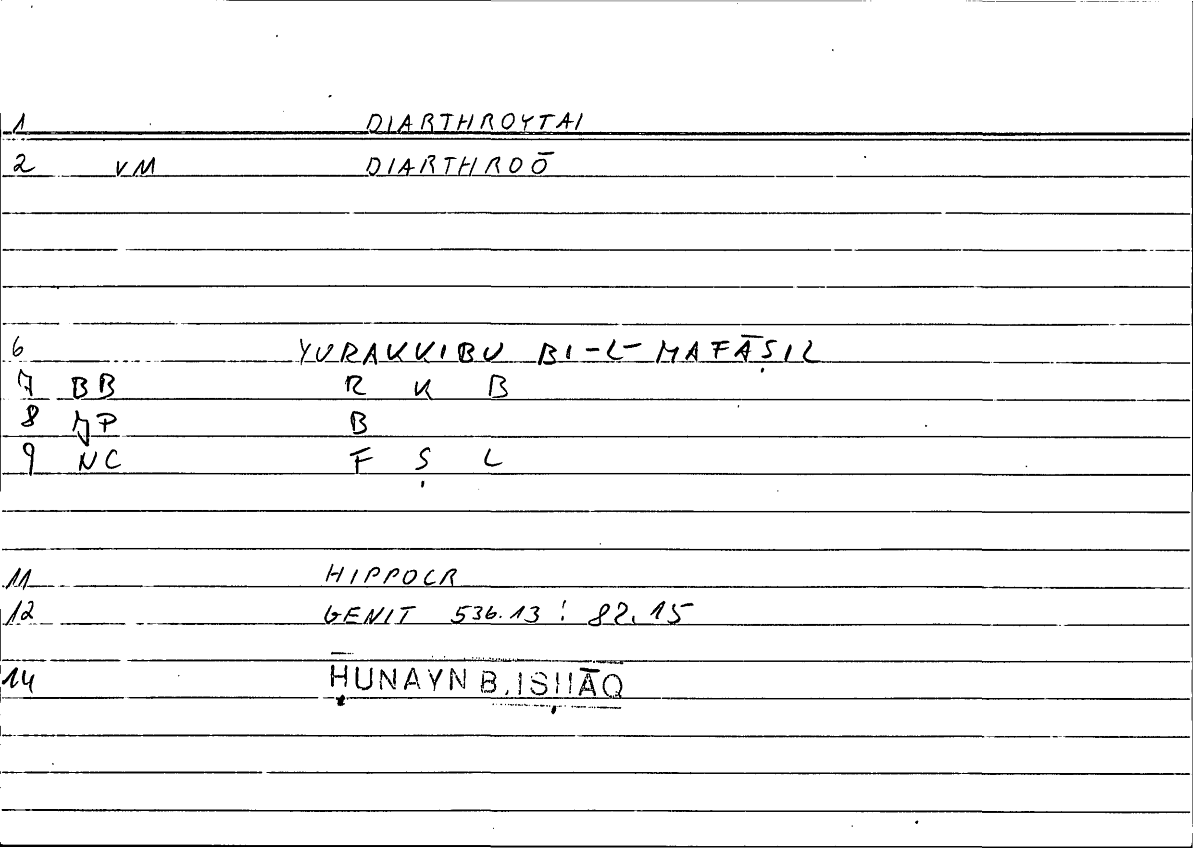 1 DIARTHROYTAI
2 VM DIARTHROŌ
6 YURAKKIBU BI-L-MAFĀṢIL
7 BB R K B
8 JP B
9 NC F Ṣ L
11 HIPPOCR
12 GENIT 536.13 : 82.15
14 ḤUNAYN B. ISḤĀQ